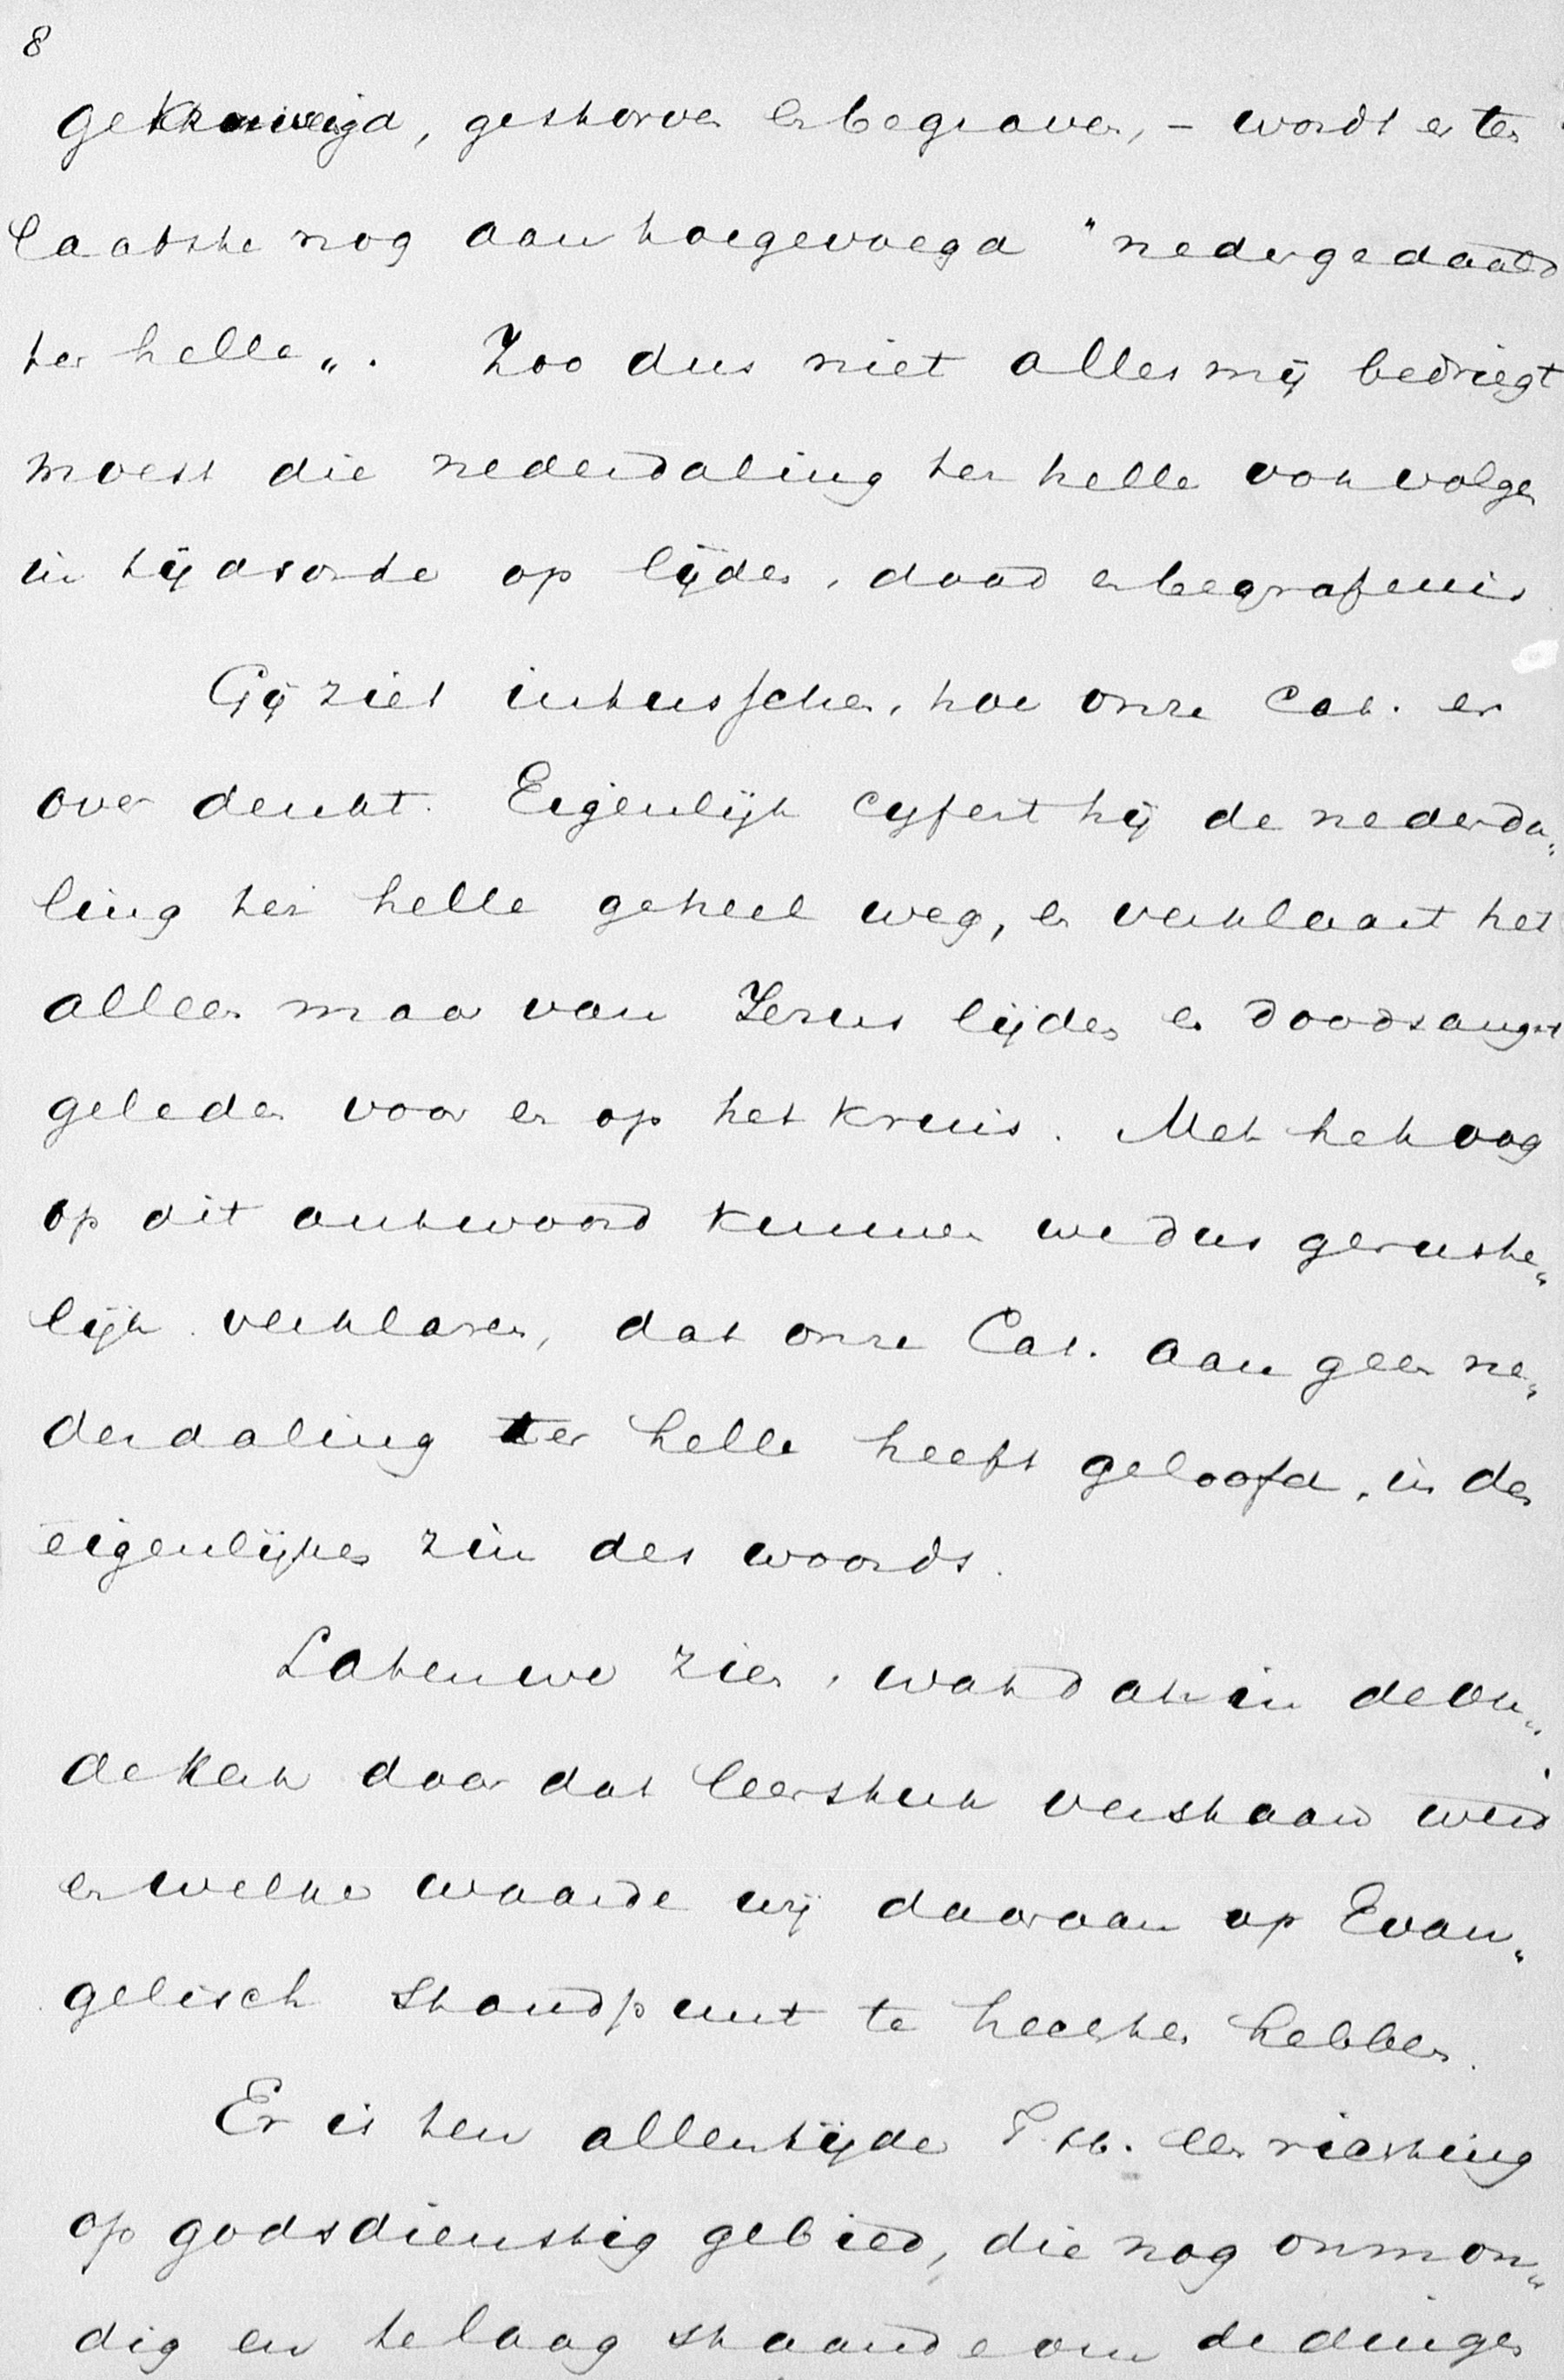 8
gekruizigd, gestorven en begraven, – wordt er ten
laatste nog aan toegevoegd "nedergedaald
ter helle„. Zoo dus niet alles mij bedriegt
moest die nederdaling ter helle ook volgen
in tijdsorde op lijden, dood en begrafenis
Gij ziet intusschen, hoe onze Cat. er
over denkt. Eigenlijk cyfert hij de nederda„
ling ter helle geheel weg, en verklaart het
alleen maar van Jezus lijden en doodsangst
geleden voor en op het kruis. Met het oog
op dit antwoord kunnen we dus geruste„
lijk verklaren, dat onze Cat. aan geen ne„
derdaling ter helle heeft geloofd, in den
eigenlijken zin des woords.
Laten we zien, wat dat in de ou„
de Kerk door dat leerstuk verstaan werd
en welke waarde wij daaraan op Evan„
gelisch standpunt te hechten hebben.
Er is ten allen tijde T. h. een richting
op godsdienstig gebied, die nog onmon„
dig en te laag staande om de dingen